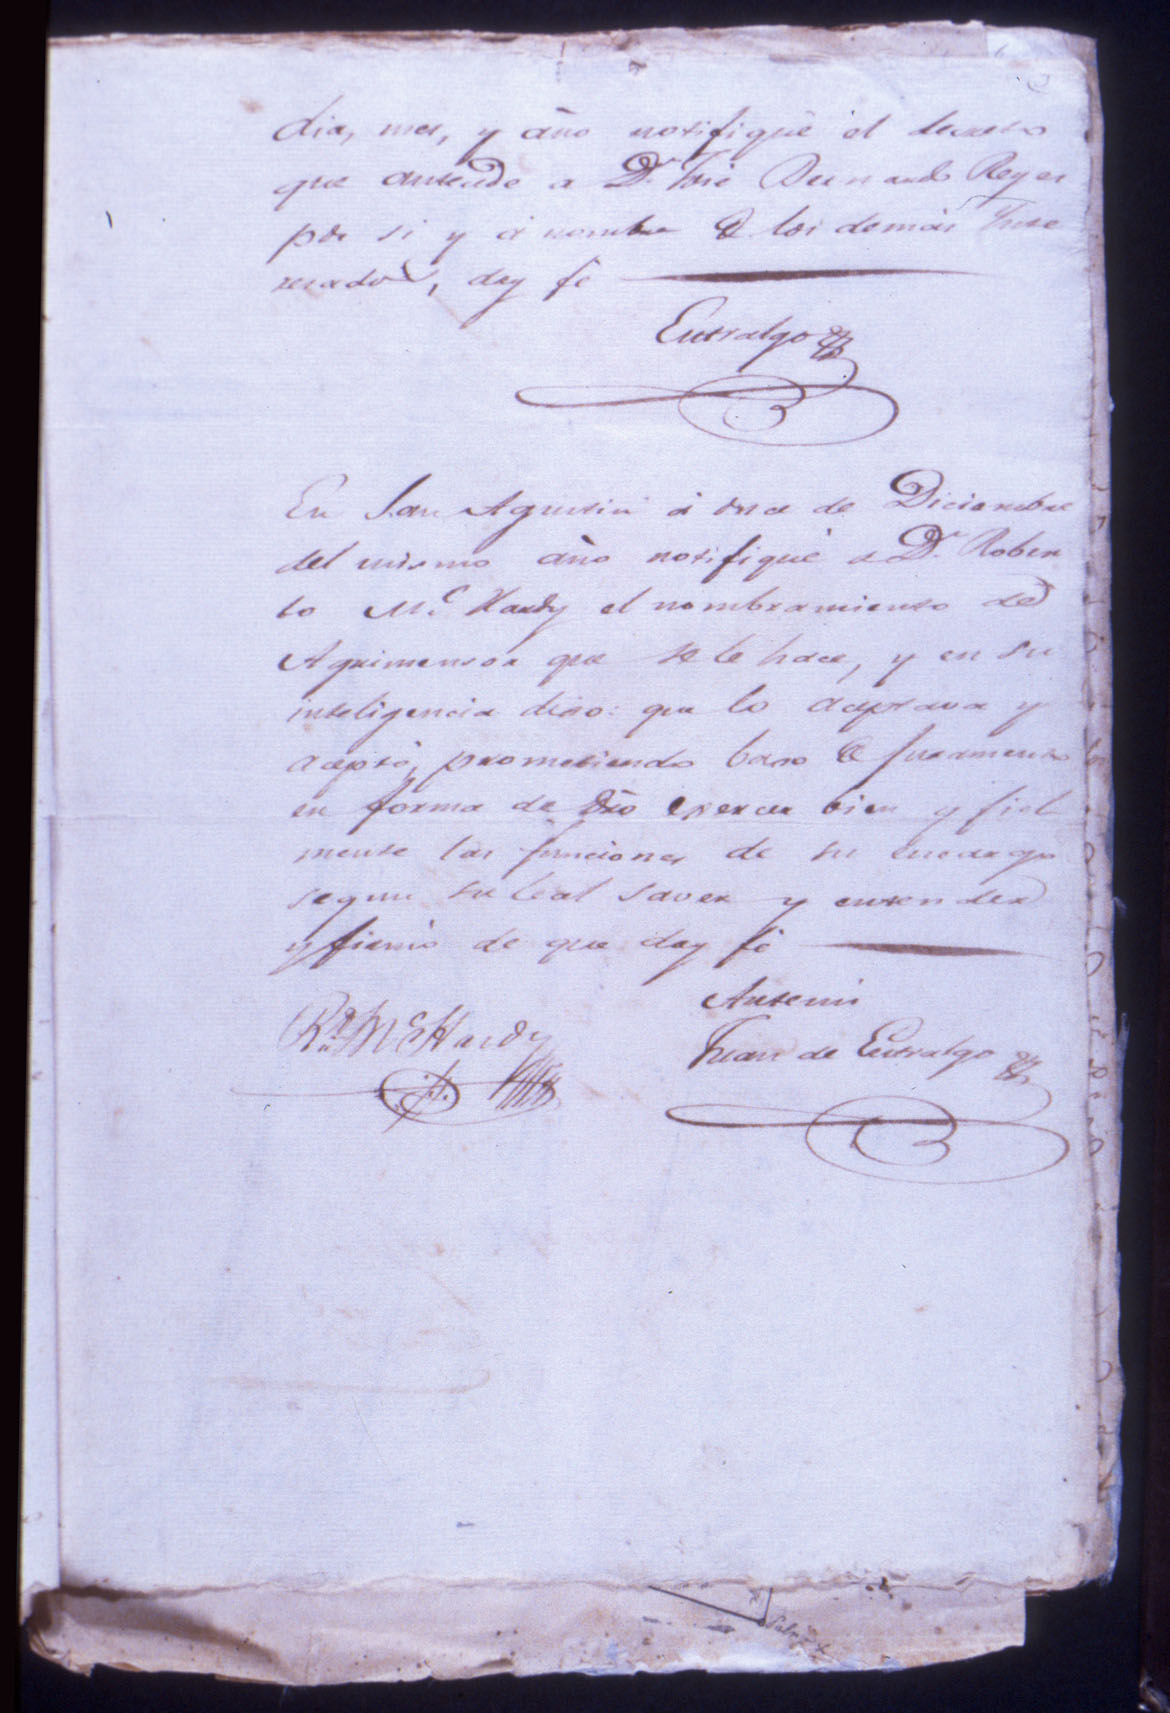 dia, mes, y año notifiqué el decreto
que antecede a Dn. José Bernardo Reyes
por si y á nombre de los demás Inte
resados, doy fé
Entralgo
En San Agustin á once de Diciembre
del mismo año notifiqué a Dn. Rober
to Mc. Hardy el nombramiento de
Agrimensor que se le hace, y en su
inteligencia dixo: que lo aceptava y
aceptó, prometiendo baxo de juramento
en forma de dro exercer bien y fiel
mente las funciones de su encargo
segun su leal saver y entender
y firmó de que doy fé
Antemi
Rt. McHardy
Juan de Entralgo